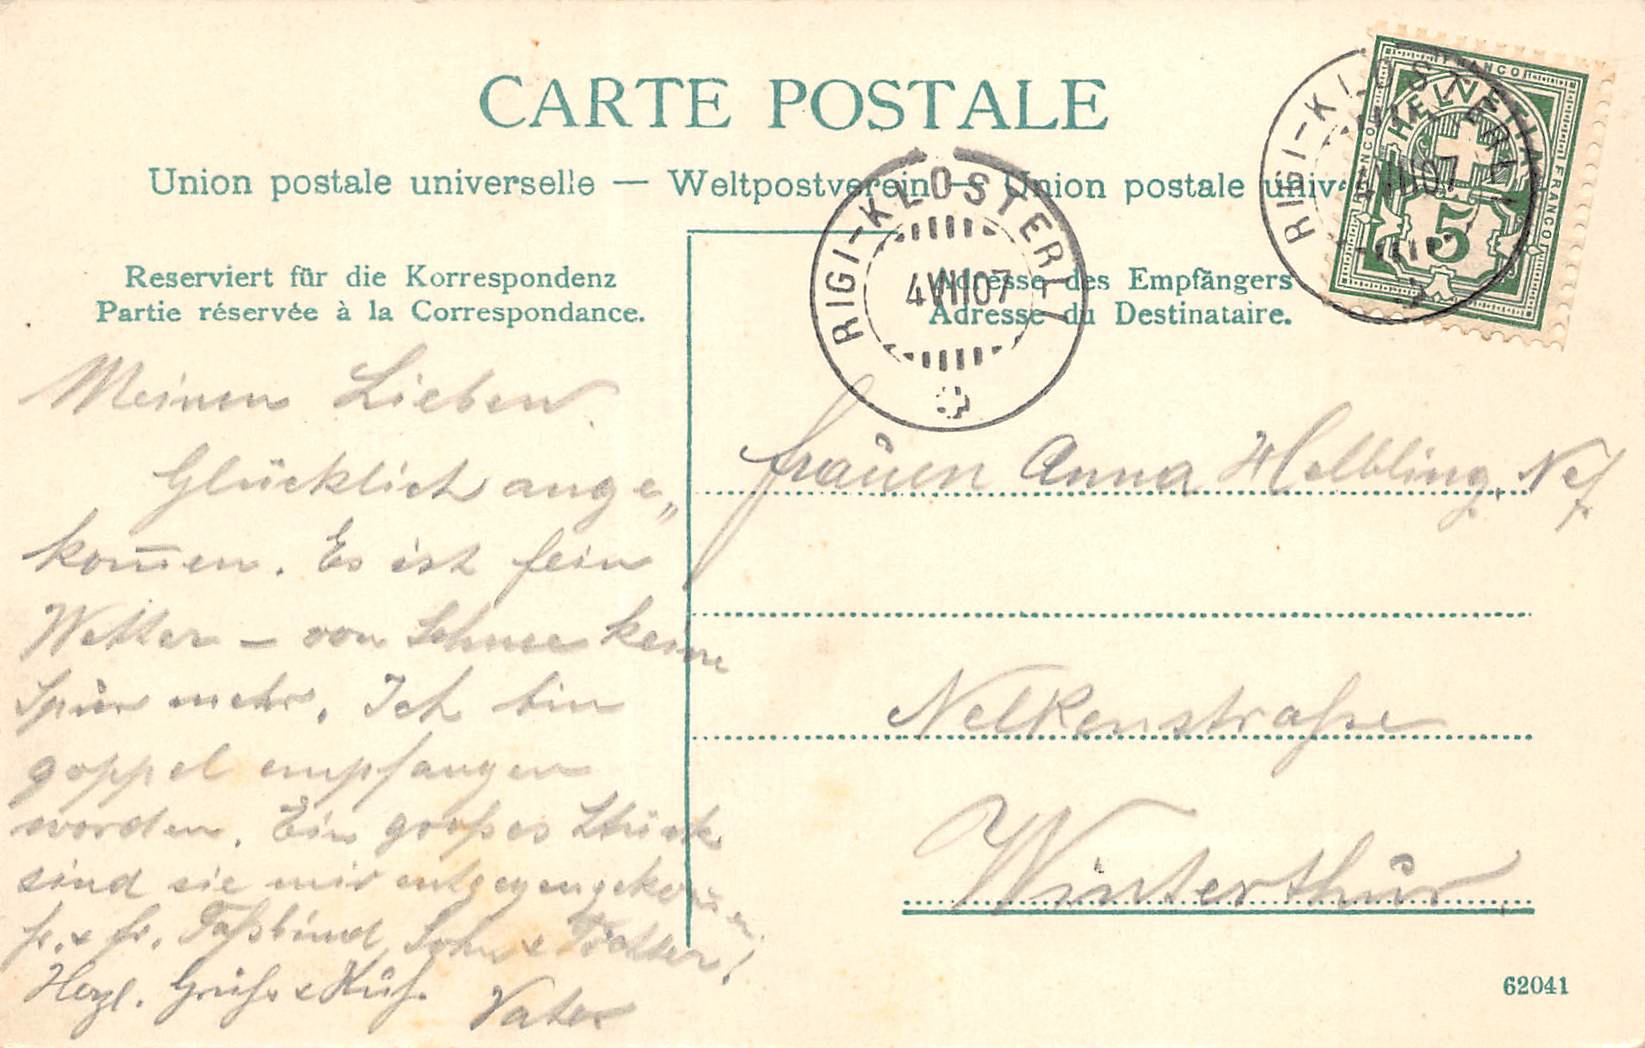 CARTE POSTALE
Union postale universelle — Weltpostverein — Union postale univ
Reserviert für die Korrespondenz
Partie réservée à la Correspondance.
Adresse des Empfängers
Adresse du Destinataire.
RIGI-KLÖSTERLI
4 VII 07
RIGI-KLÖSTERLI
4 VII 07
FRANCO
HELVETIA
FRANCO
FRANCO
5
Meinen Lieben
Glücklich ange„
kom̅en. Es ist fein
Wetter – von Schnee keine
Spur mehr. Ich bin
goppel empfangen
worden. Ein großes Stück
sind sie mir entgegengekom̅en.
Hr. & Fr. Faßbind, Sohn & Tochter!
Herzl. Gruß & Kuß.
Vater
Frauen Anna Helbling, Nef
Nelkenstraße
Winterthur
62041